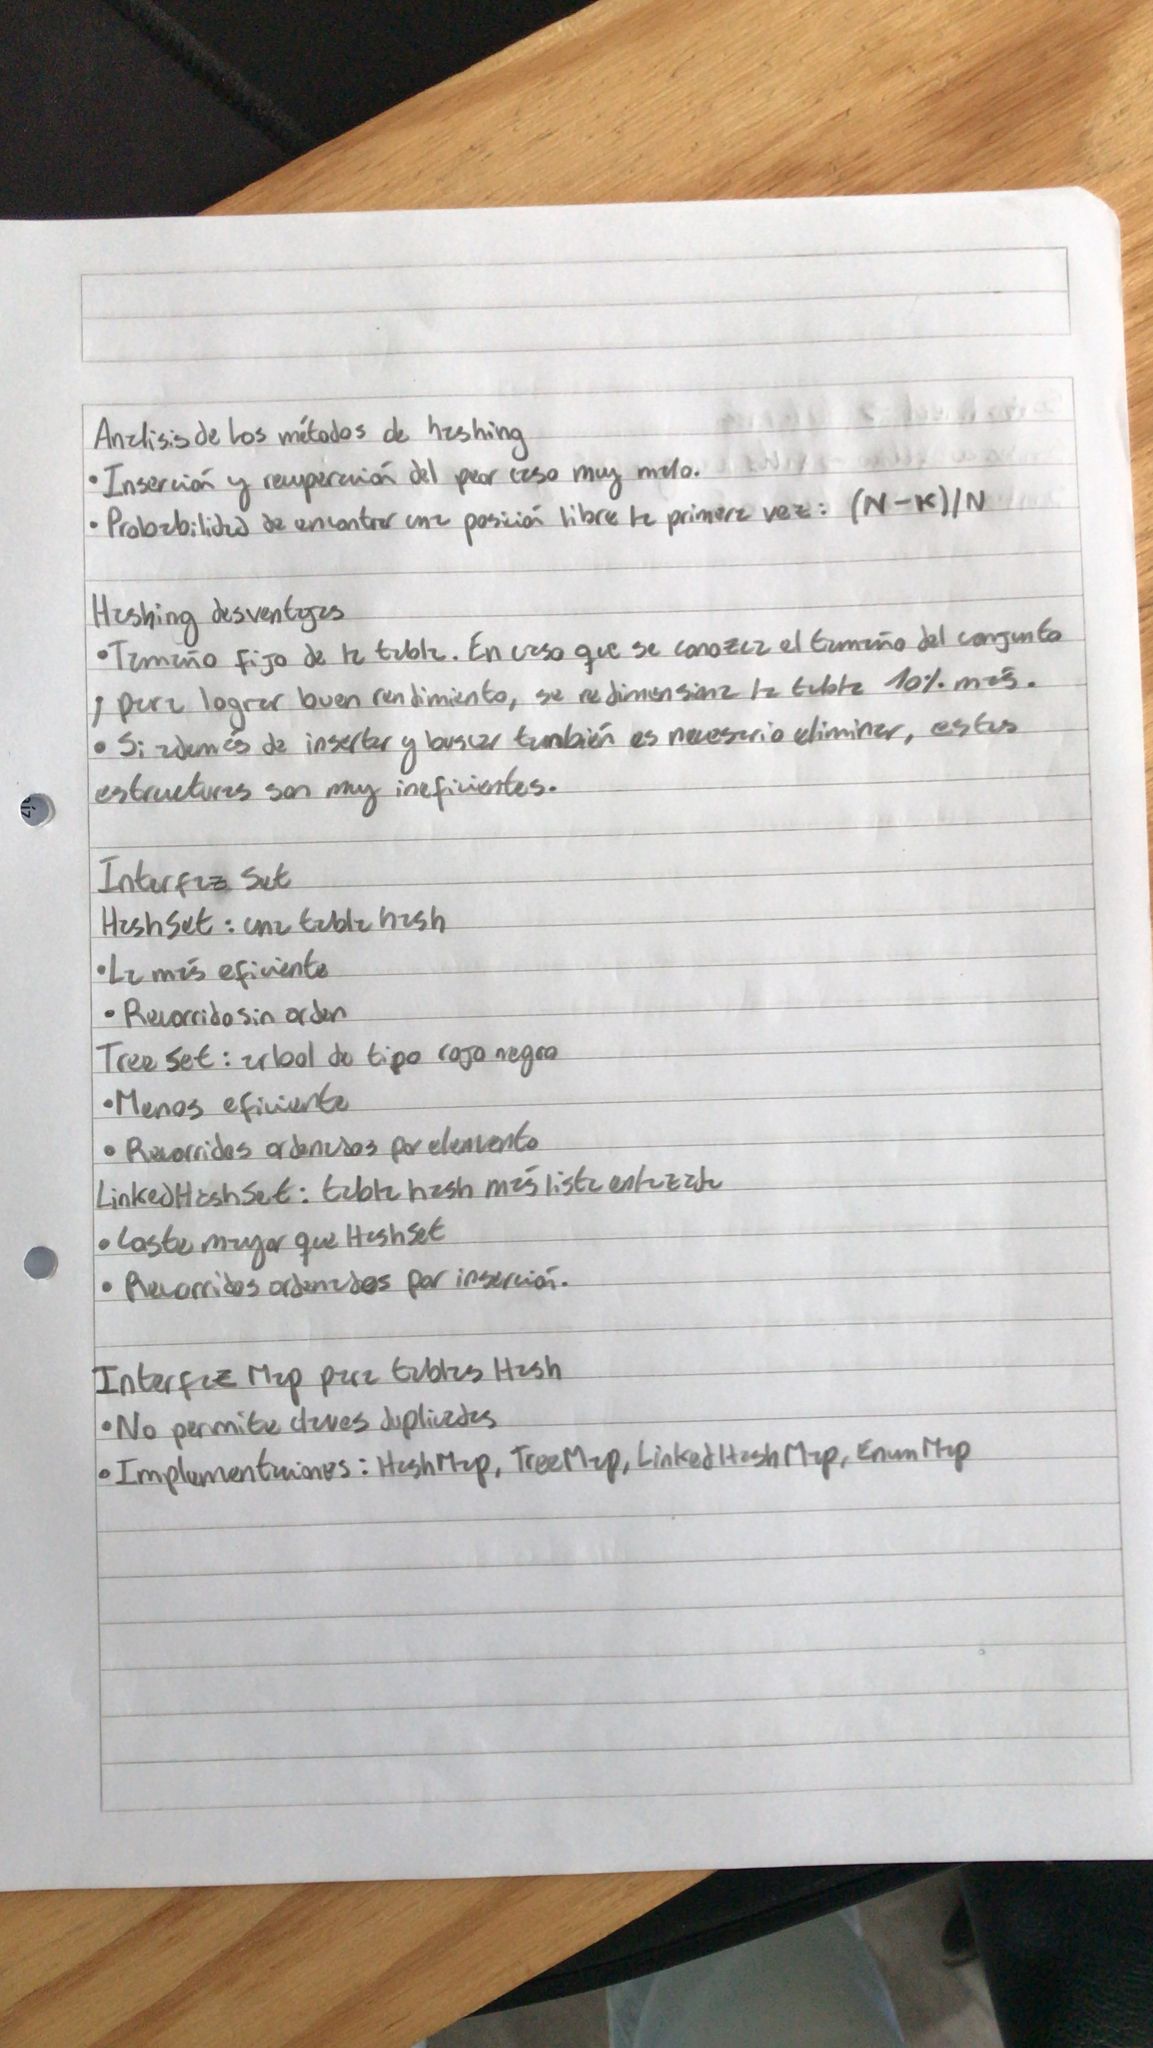 Analisis de los métodos de hashing
• Inserción y recuperación del peor caso muy malo.
• Probabilidad de encontrar una posición libre la primera vez: (N-K)/N
Hashing desventajas
• Tamaño fijo de la tabla. En caso que se conozca el tamaño del conjunto
y para lograr buen rendimiento, se redimensiona la tabla 10% más.
• Si además de insertar y buscar también es necesario eliminar, estas
estructuras son muy ineficientes.
Interfaz Set
HashSet: una tabla hash
• La más eficiente
• Recorrido sin orden
Tree Set: arbol de tipo rojo negro
• Menos eficiente
• Recorridos ordenados por elemento
LinkedHashSet: tabla hash más lista enlazada
• Coste mayor que HashSet
• Recorridos ordenados por inserción.
Interfaz Map para tablas Hash
• No permite claves duplicadas
• Implementaciones: HashMap, TreeMap, LinkedHashMap, EnumMap